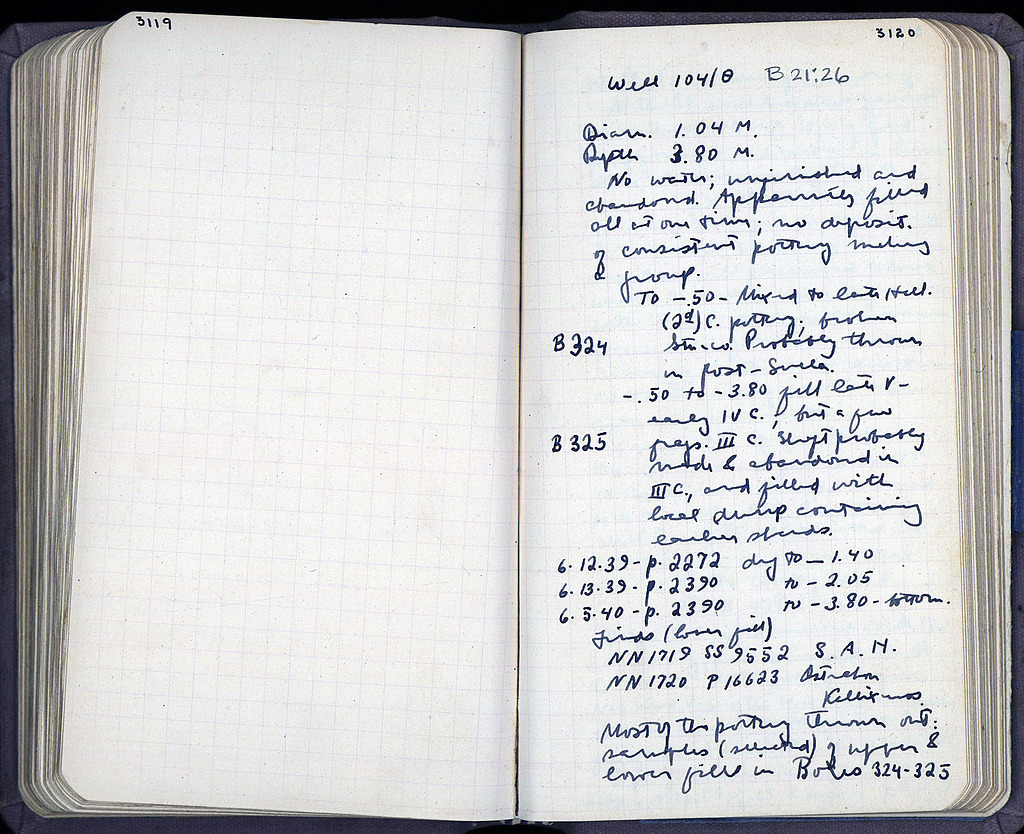 3119
3120
Well 104/Θ B 21:26
Diam. 1.04 M.
Depth 3.80 M.
No water; unfinished and
abandoned. Apparently filled
all at one time; no deposit.
of consistent pottery making
a group.
To -.50 - Mixed to late Hell.
(2d) C. pottery; broken
B 324 Stucco. Probably thrown
in post-Sulla.
-.50 to -3.80 fill late V-
early IV C., but a few
B 325 frags. III C. Shaft probably
made & abandoned in
III C., and filled with
local dump containing
earlier sherds.
6.12.39 - p. 2272 dug to - 1.40
6.13.39 - p. 2390 to - 2.05
6.5.40 - p. 2390 to - 3.80 - bottom.
Finds (lower fill)
NN 1719 SS 9552 S. A. H.
NN 1720 P 16623 Ostrakon
Kallixenos
Most of the pottery thrown out:
samples (selected) of upper &
lower fills in Boxes 324-325